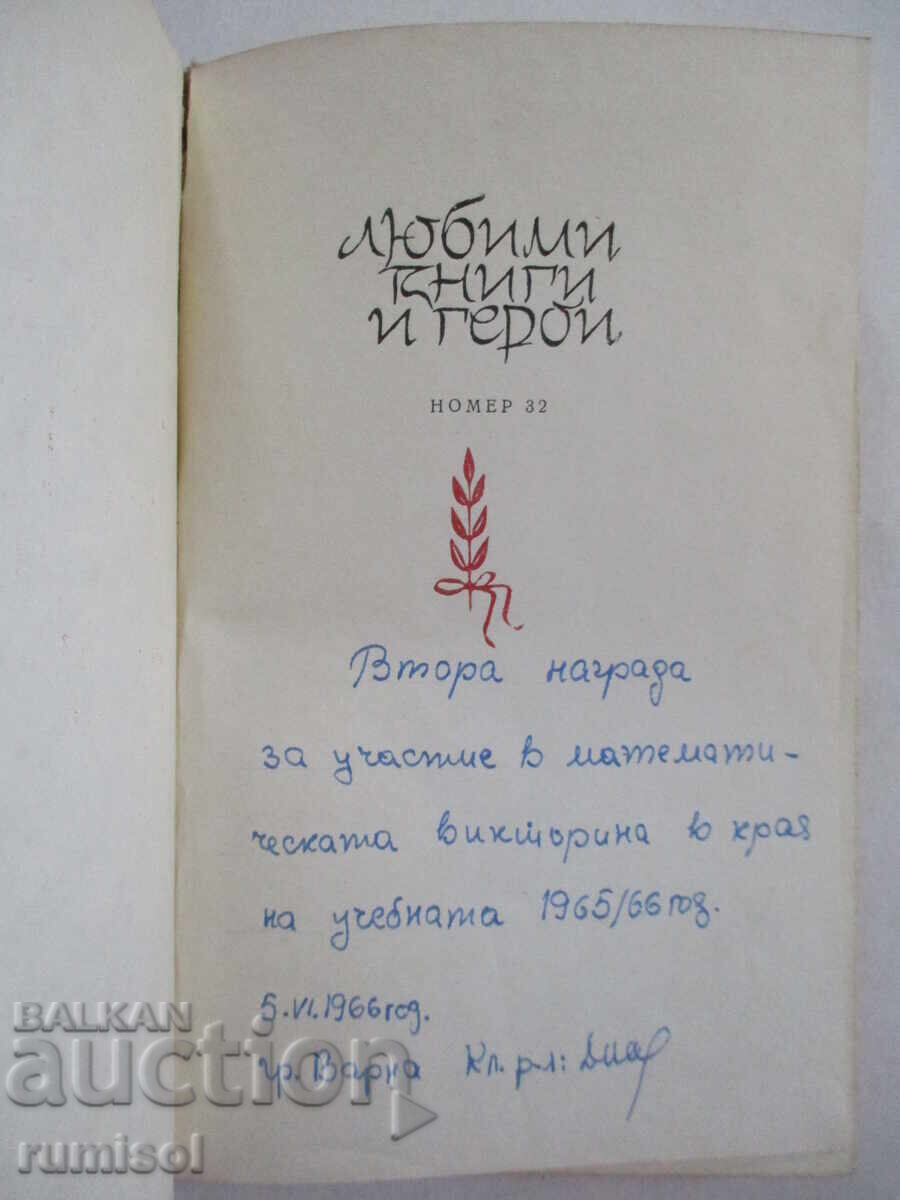 любими
книги
и герои
НОМЕР 32
Втора награда
за участие в математи-
ческата викторина в края
на учебната 1965/66 год.
5.VI.1966 год.
гр. Варна Кл. р-л:
BALKAN
auction
rumisol